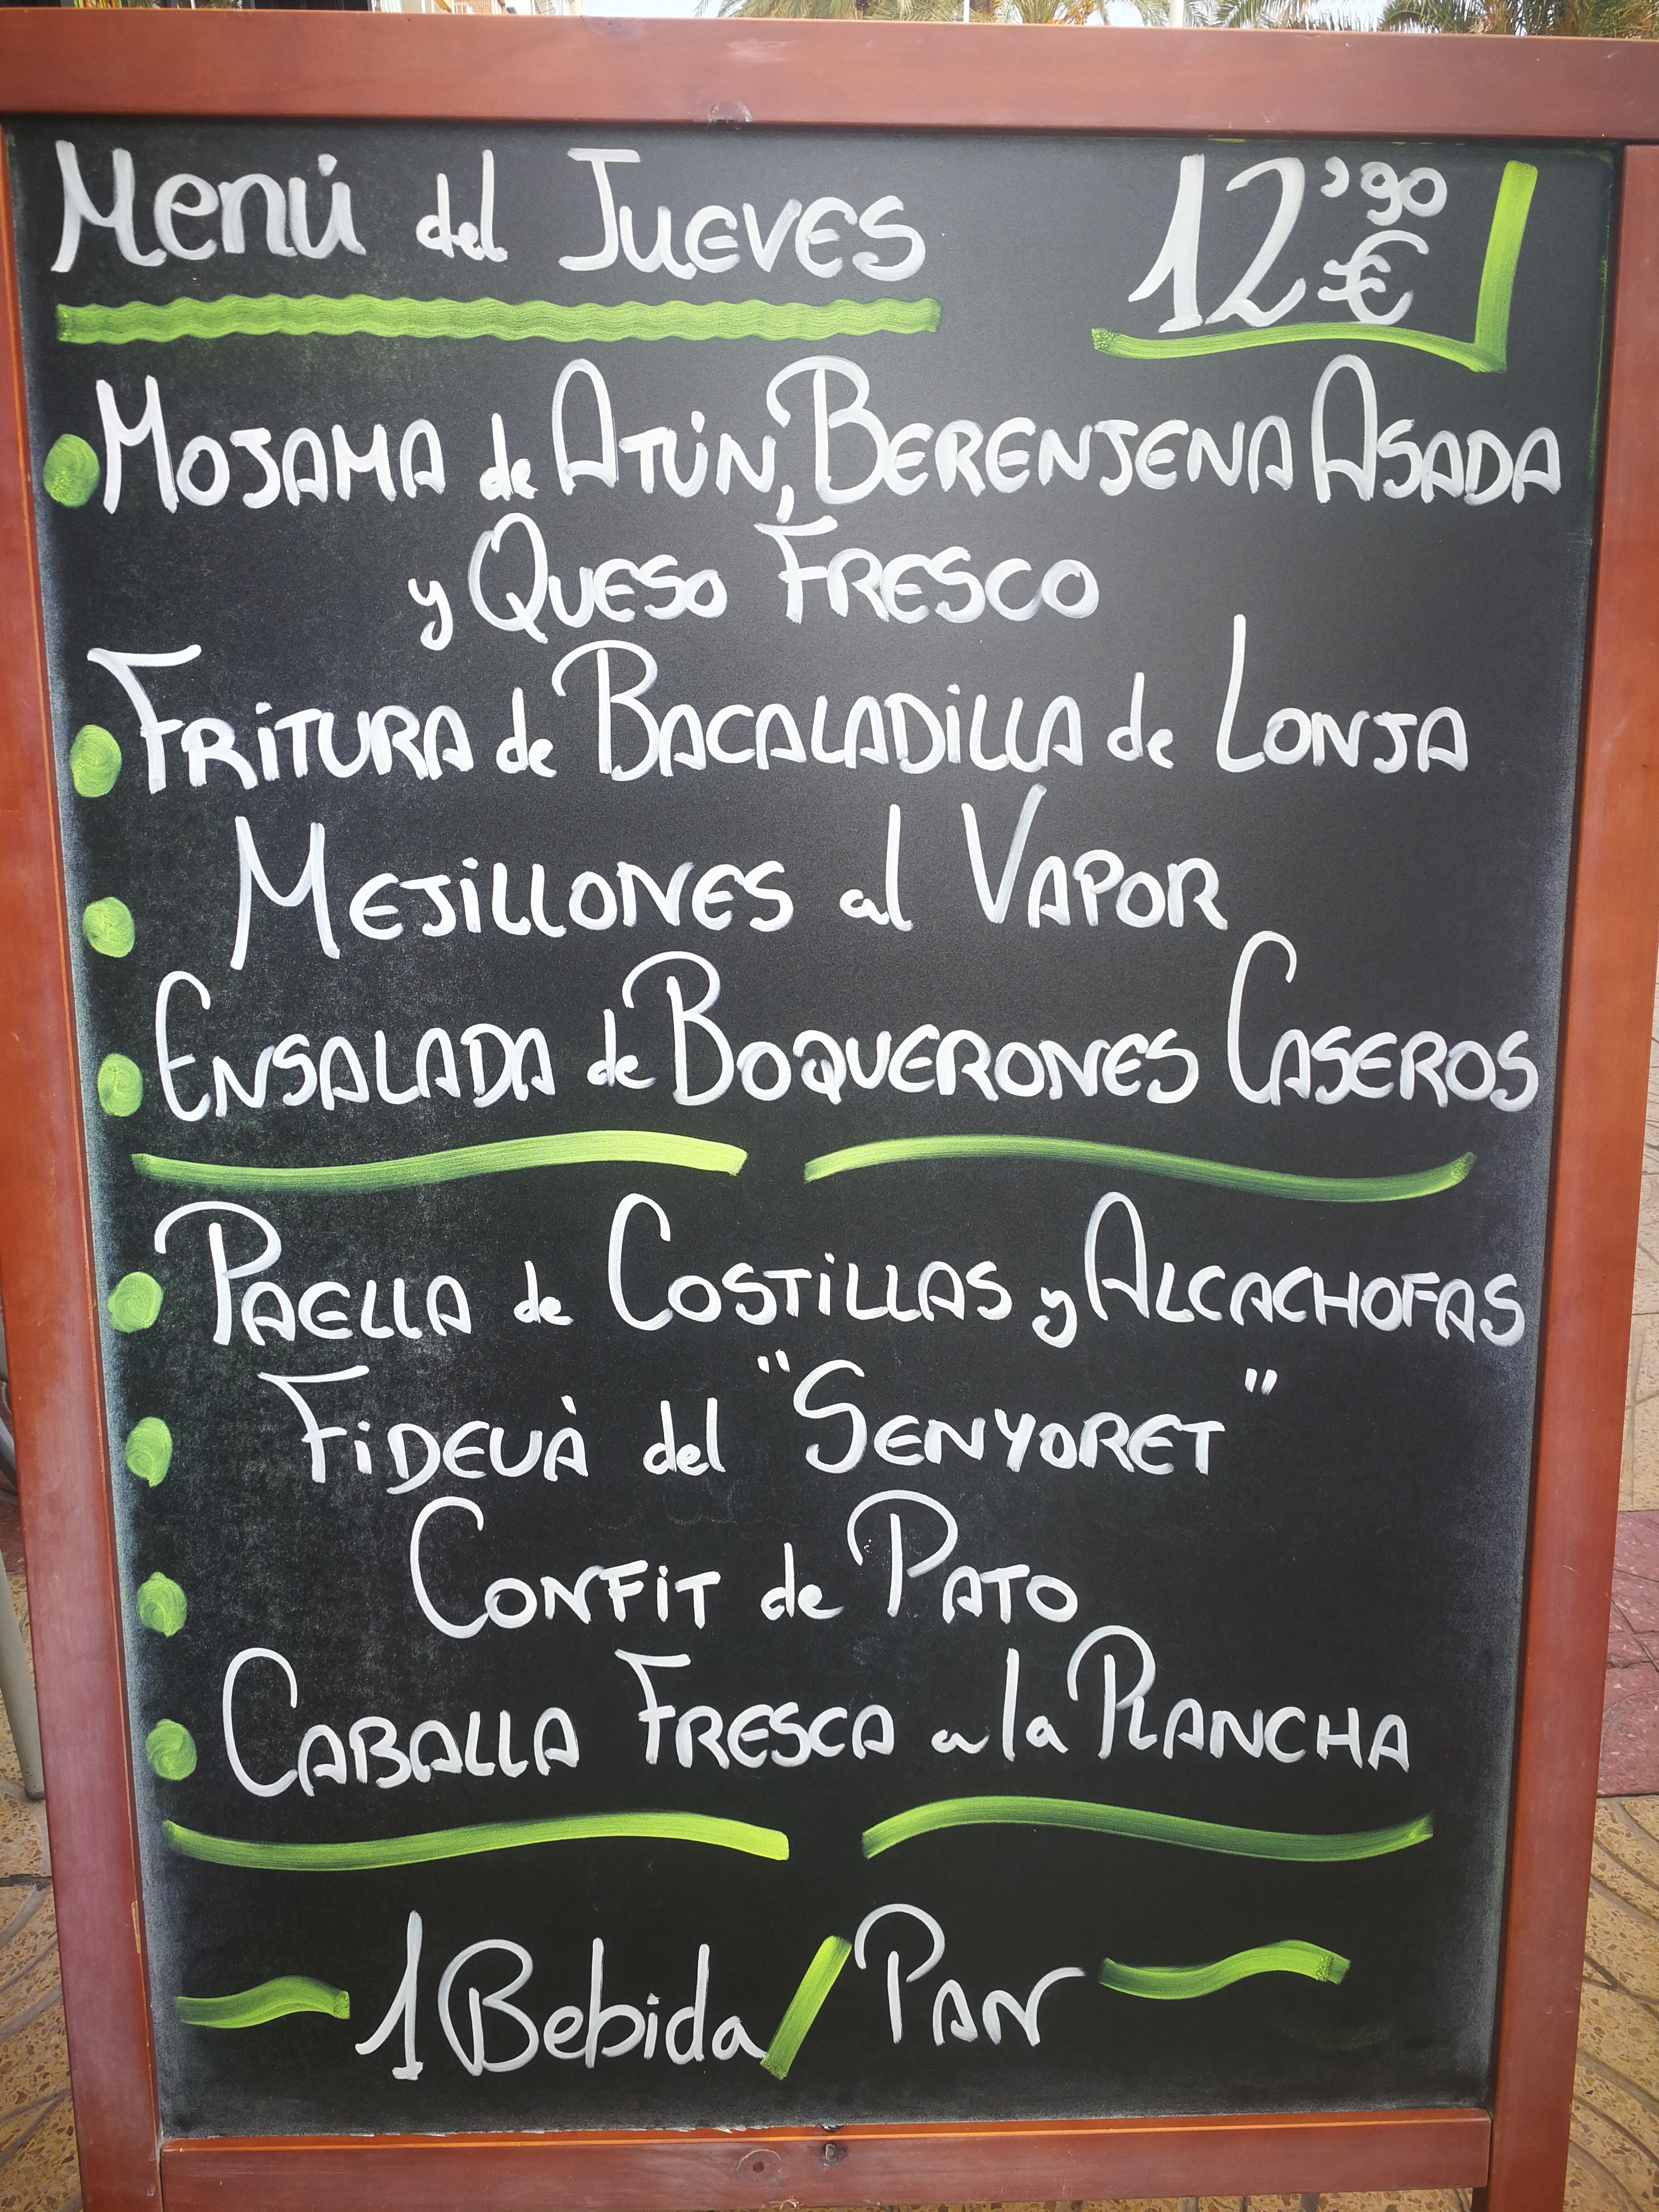 Menú del Jueves 12'90 €
Mojama de Atún, Berenjena Asada
y Queso Fresco
Fritura de Bacaladilla de Lonja
Mejillones al Vapor
Ensalada de Boquerones Caseros
Paella de Costillas y Alcachofas
Fideuà del "Senyoret"
Confit de Pato
Caballa Fresca a la Plancha
1 Bebida / Pan